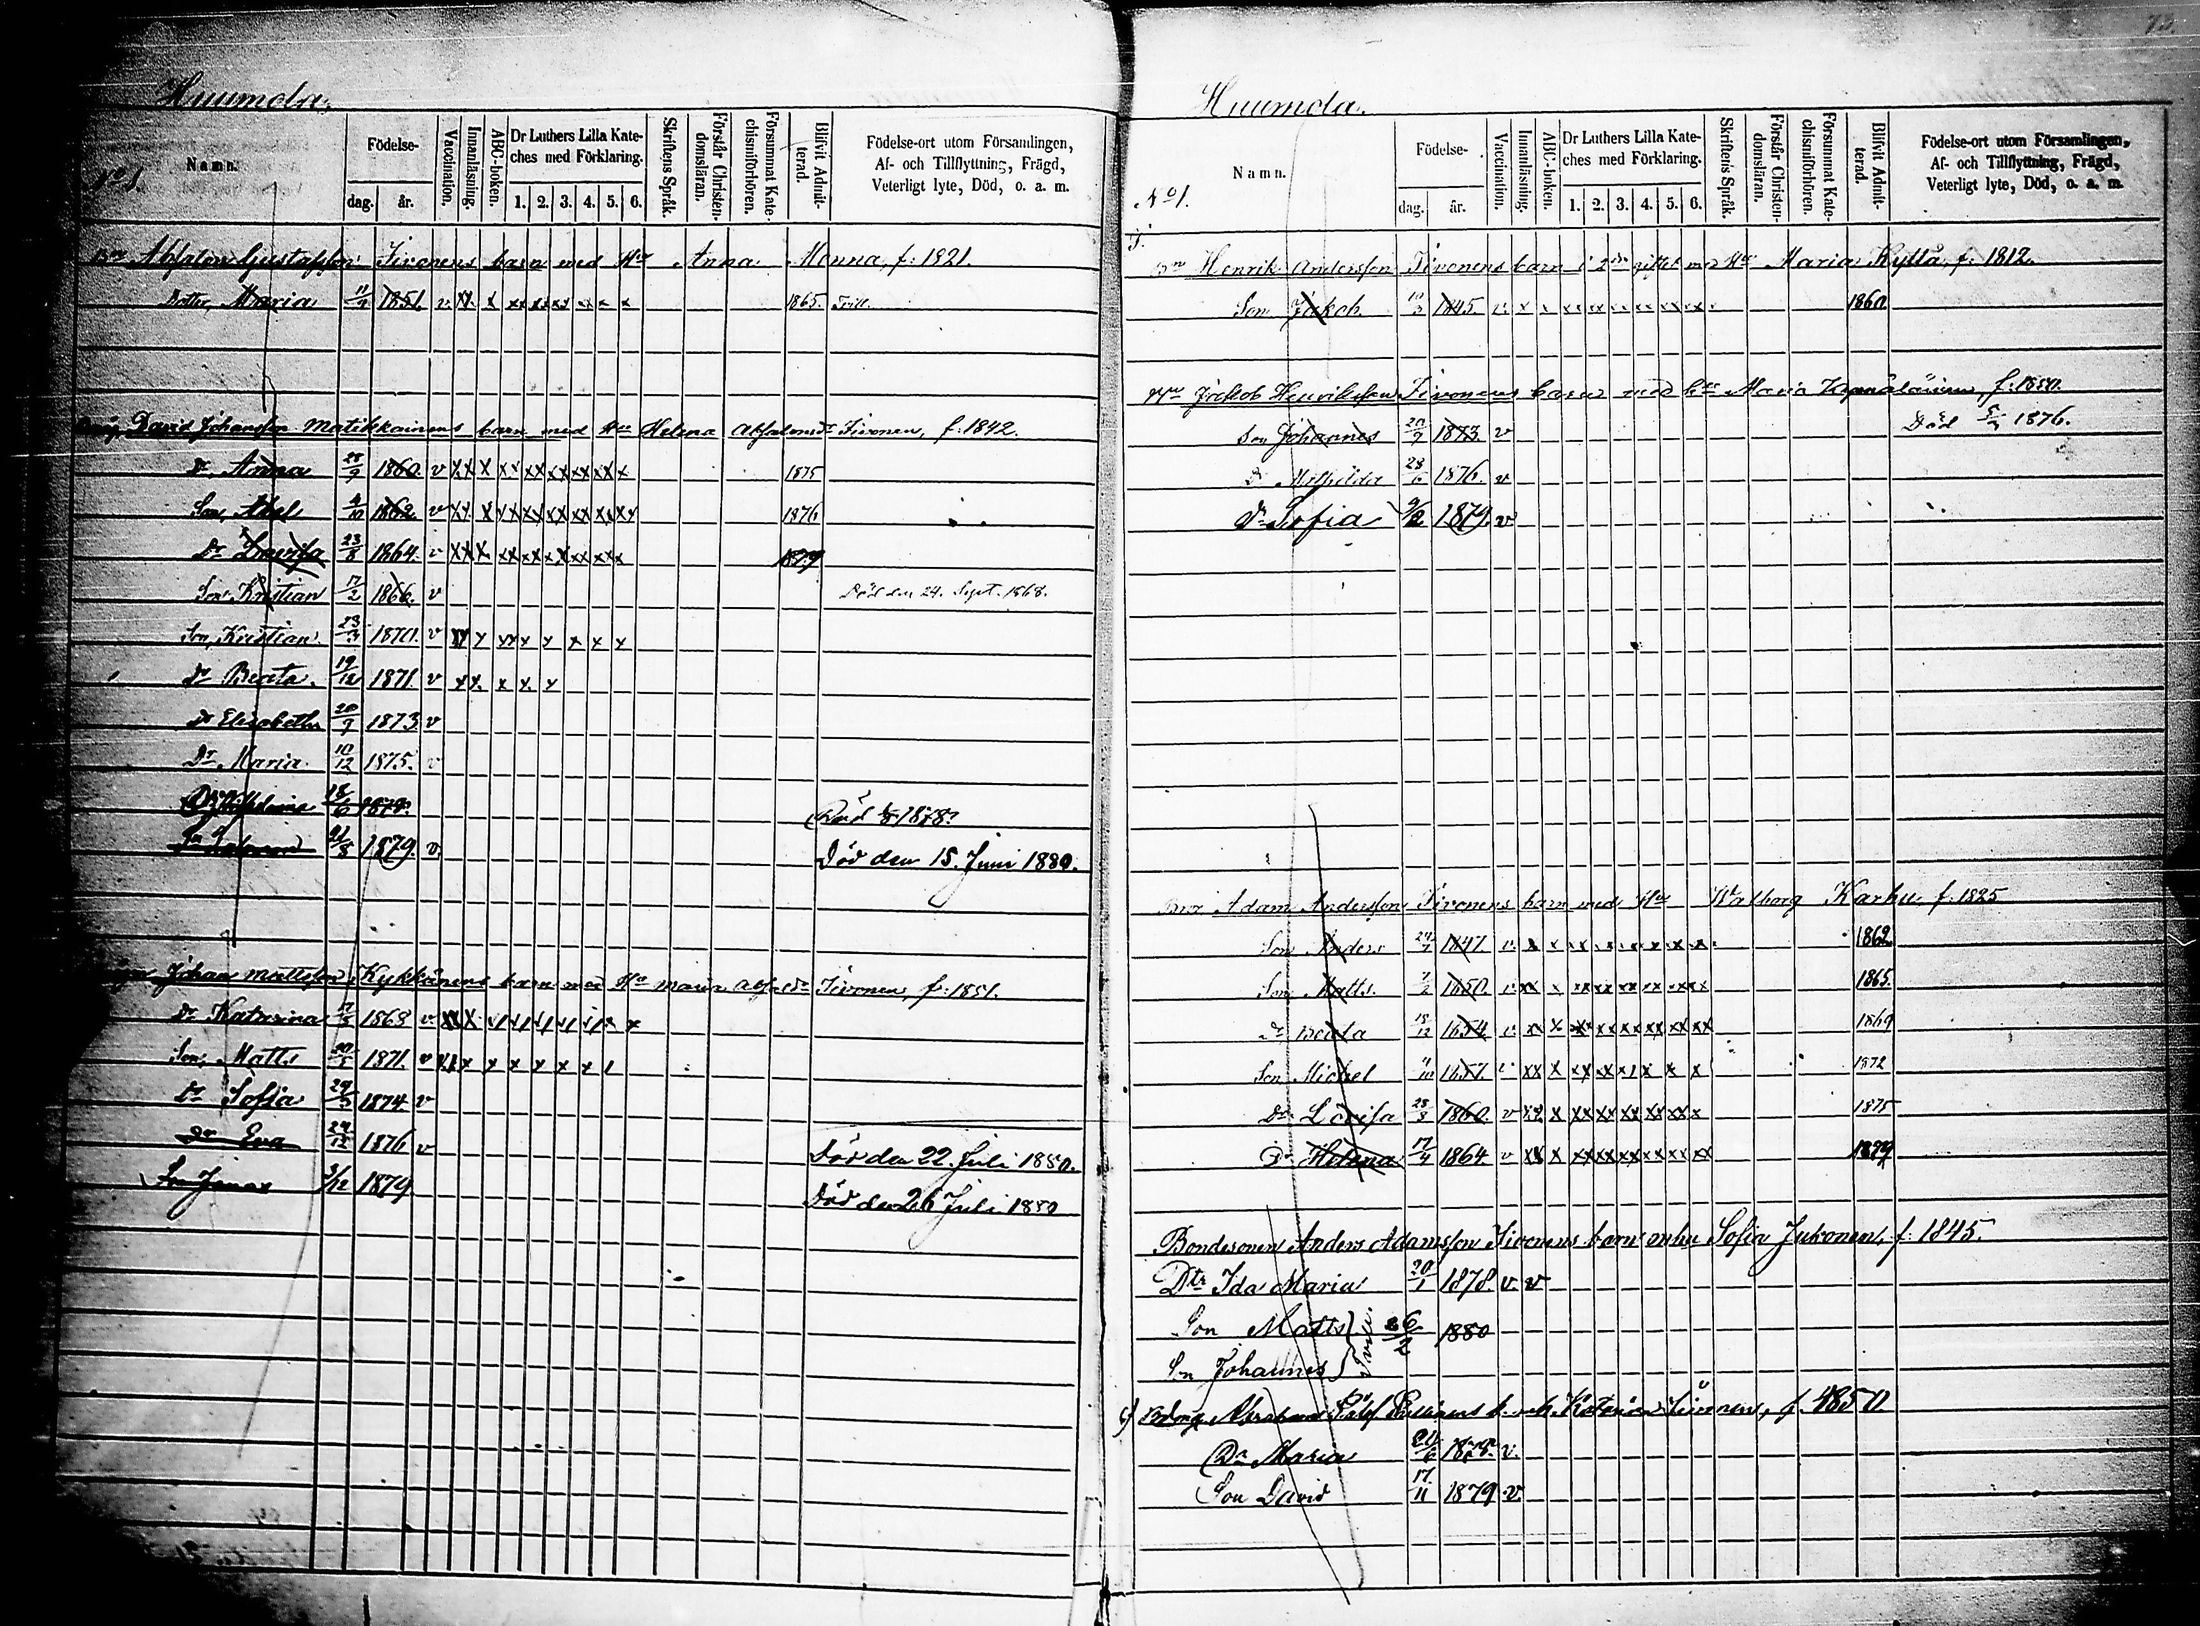 Huumola.
Namn.
Födelse-
dag.
år.
Vaccination.
Innanläsning.
ABC-boken.
Dr Luthers Lilla Kate-
ches med Förklaring.
1. 2. 3. 4. 5. 6.
Skriftens Språk.
Förstår Christen-
domsläran.
Försummat Kate-
chismiförhören.
Blifvit Admit-
terad.
Födelse-ort utom Församlingen,
Af- och Tillflyttning, Frägd,
Veterligt lyte, Död, o. a. m.
No 1.
Absalon Gustafsson Sironens barn med Hu Anna Monna, f: 1821.
Dotter, Maria 11/9 1851. v 1865.
David Johansson Matikkainens barn med Hu Helena Absalonsdr Sironen, f: 1842.
Dr Anna 28/9 1860. v 1875
Son, Abel 4/10 1862. v 1876
Dr Lovisa 23/8 1864. v 1879
Son Kristian 17/2 1866. v Död den 24. Sept. 1868.
Son, Kristian. 23/3 1870. v
Dr Beata. 19/12 1871. v
Dr Elisabeth 20/9 1873 v
Dr Maria 10/12 1875. v
18/6 Död 1878.
21/8 1879. v. Död den 15. Juni 1880.
Johan Mattsson Kykkänens barn med Hu Maria Absaldr Sironen, f: 1851.
Dr Katarina 17/8 1868 v
Son, Matts 20/5 1871. v
Dr Sofia 29/3 1874 v
Dr Eva 24/12 1876 v Död den 22. Juli 1880.
Son Jonas 3/12 1879 Död den 26 Juli 1880
Huumola.
Namn.
Födelse-
dag.
år.
Vaccination.
Innanläsning.
ABC-boken.
Dr Luthers Lilla Kate-
ches med Förklaring.
1. 2. 3. 4. 5. 6.
Skriftens Språk.
Förstår Christen-
domsläran.
Försummat Kate-
chismiförhören.
Blifvit Admit-
terad.
Födelse-ort utom Församlingen,
Af- och Tillflyttning, Frägd,
Veterligt lyte, Död, o. a. m.
No 1.
Henrik Andersson Sironens barn i 2dra giftet med Hu Maria Kyllä, f: 1812.
Son Jakob 10/3 1845 v. 1860
Jakob Henriksson Sironens barn med Hu Maria f: 1850.
Son Johannes 20/9 1873. v Död 1876.
Dr Mathilda 28/6 1876. v
Dr Sofia 9/2 1879. v
Adam Andersson Sironens barn med Hu Walborg Karhu f. 1825
Son Anders 1847 v. 1862
Son Matts. 1850. v. 1865.
Dr Beata 18/12 1854 v. 1869
Son Michel 1857. v. 1872
Dr Lovisa 28/3 1860. v 1875
Dr Helena 17/4 1864 v 1879
Bondesonen Anders Adamsson Sironens barn m hu Sofia Jukonen, f. 1845.
Dtr Ida Maria 20/1 1878. v. v
Son Matts 26/2 1880
Son Johannes
Abraham Katarina Sironen, f. 1850
Dr Maria 1878. v.
Son David 17/11 1879 v.